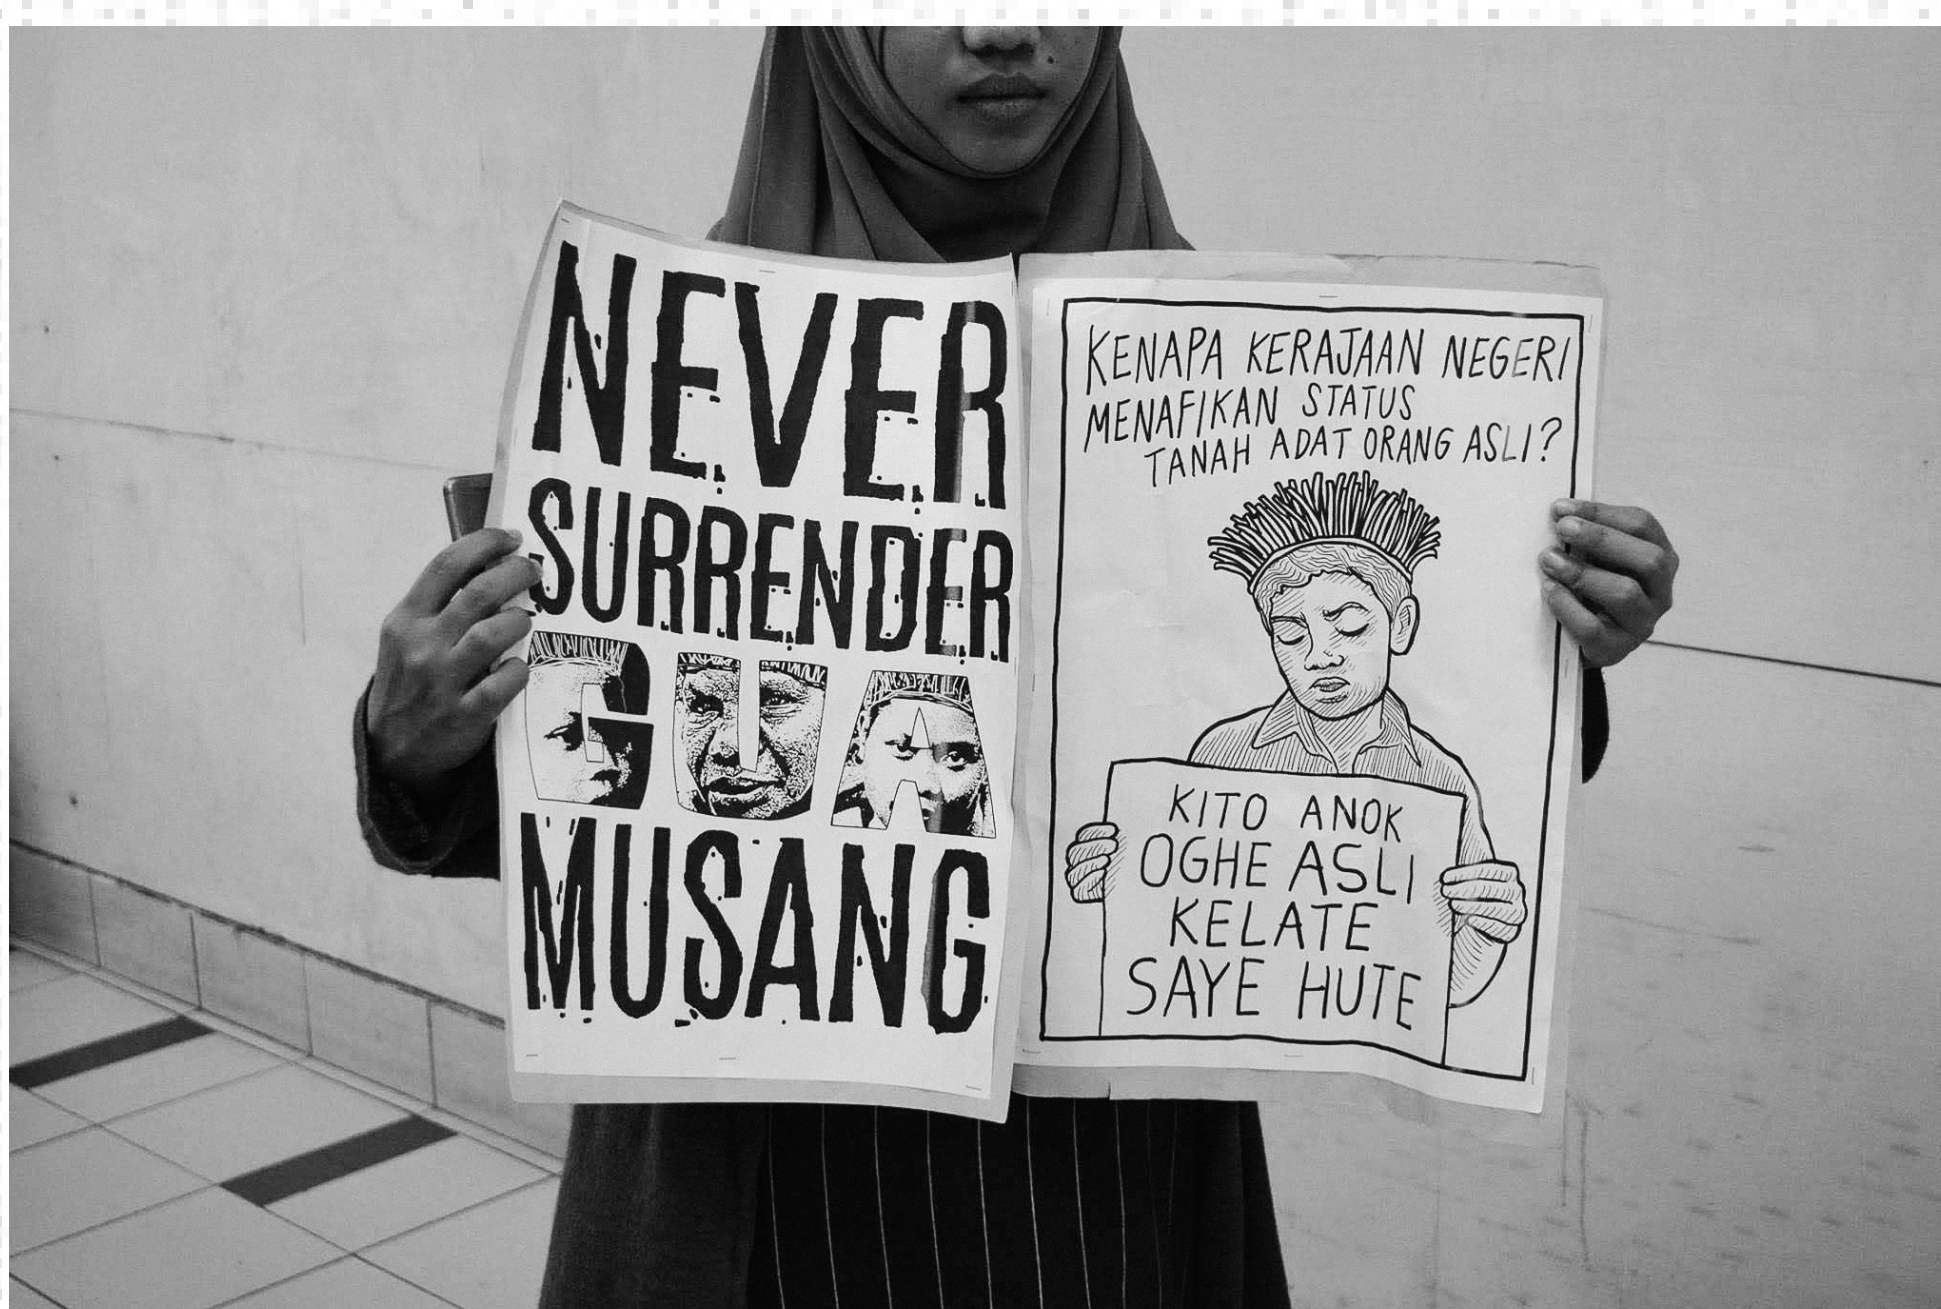 NEVER
SURRENDER
GUA
MUSANG
KENAPA KERAJAAN NEGERI
MENAFIKAN STATUS
TANAH ADAT ORANG ASLI?
KITO ANOK
OGHE ASLI
KELATE
SAYE HUTE